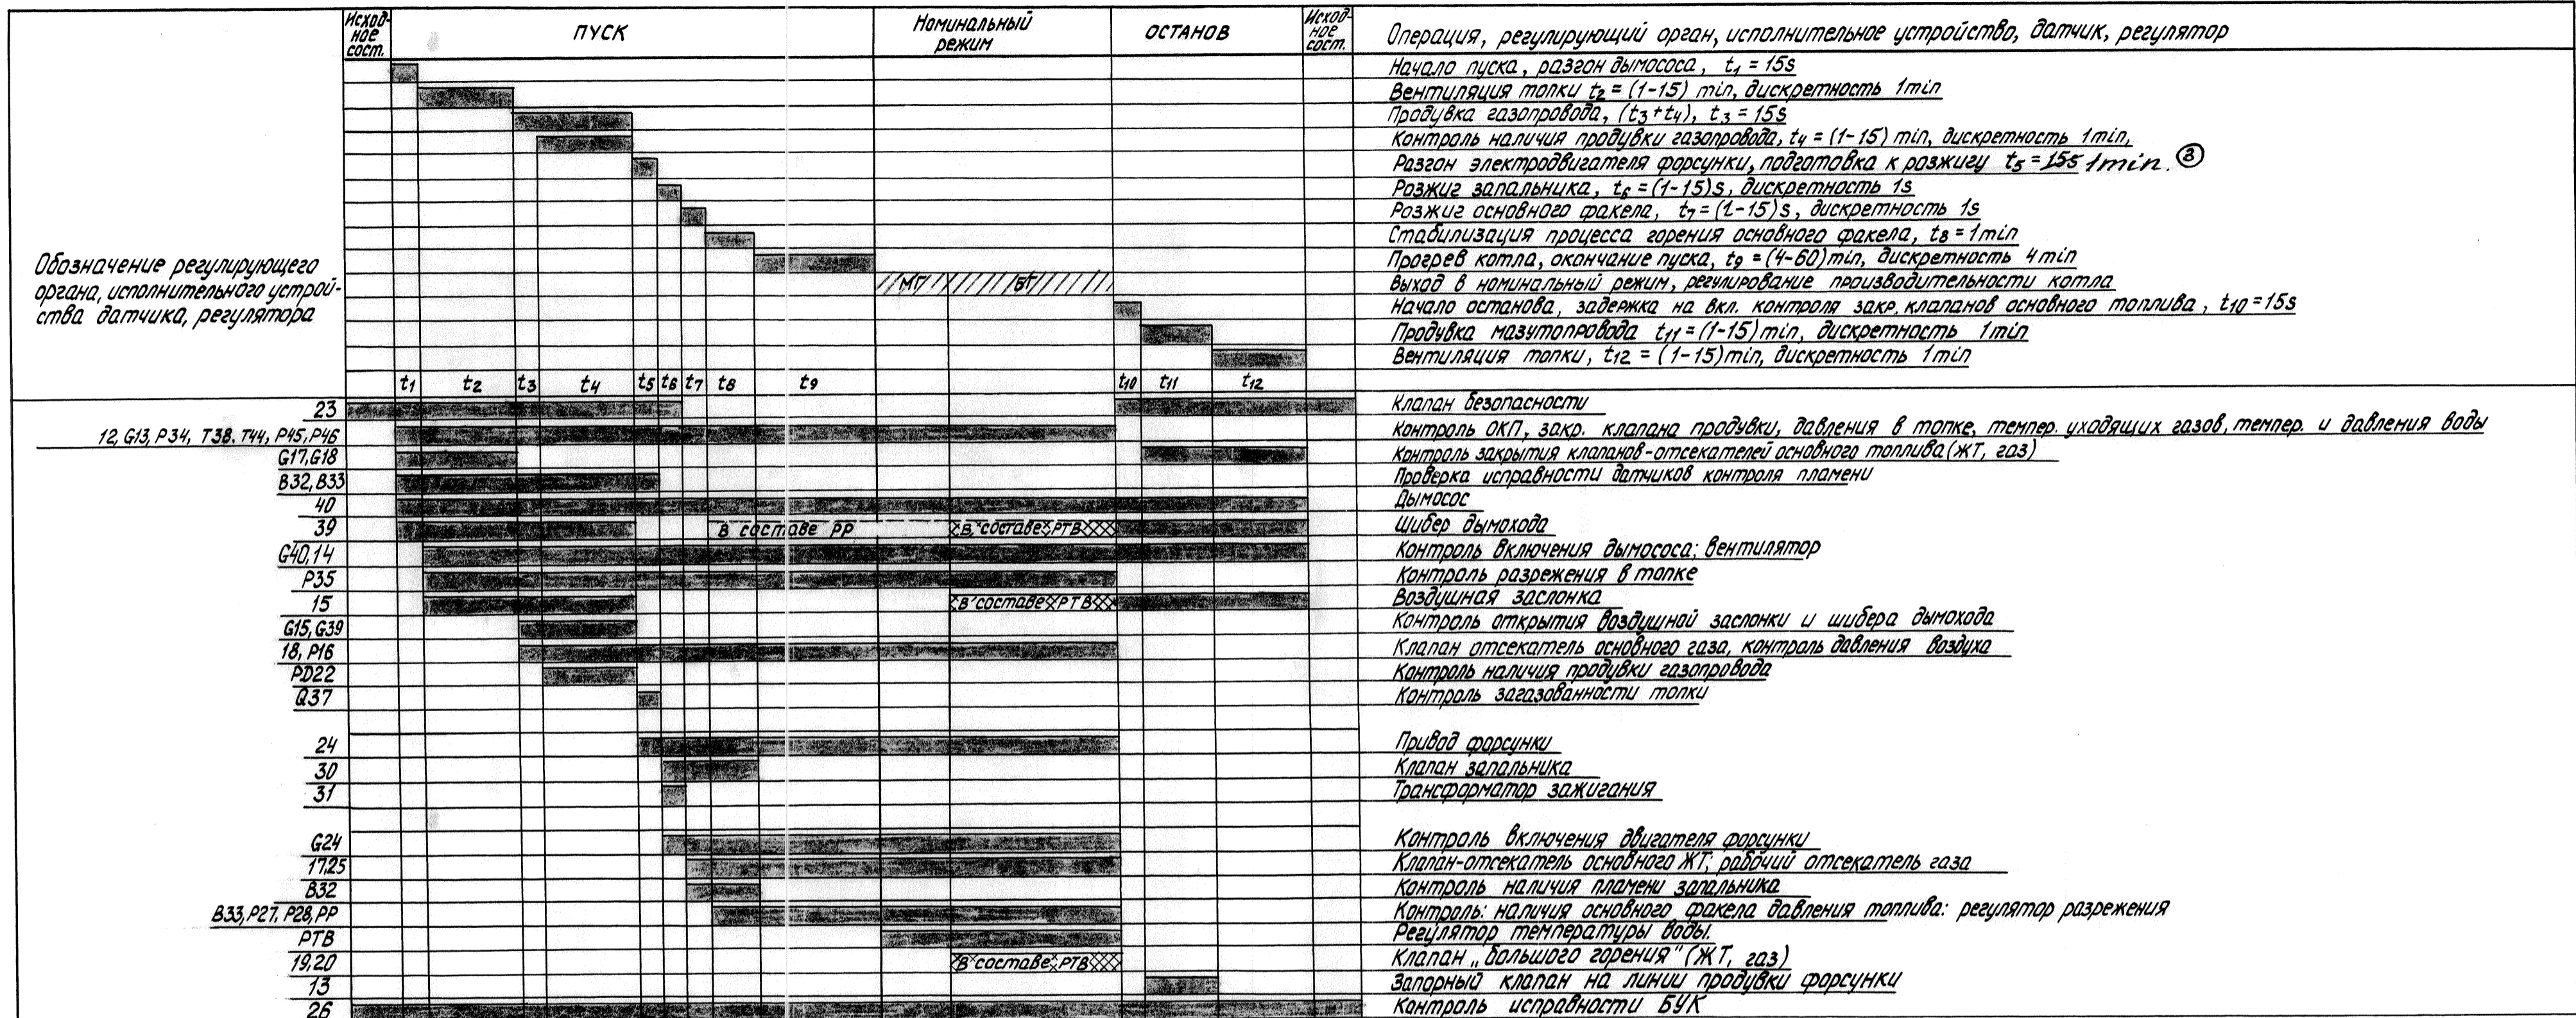 Исход-
ное
сост.
ПУСК
Номинальный
режим
ОСТАНОВ
Исход-
ное
сост.
Операция, регулирующий орган, исполнительное устройство, датчик, регулятор
Начало пуска, разгон дымососа, t1 = 15s
Вентиляция топки t2 = (1-15) min, дискретность 1min
Продувка газопровода, (t3+t4), t3 = 15s
Контроль наличия продувки газопровода, t4 = (1-15) min, дискретность 1min,
Разгон электродвигателя форсунки, подготовка к розжигу t5 = 15s 1min. 3
Розжиг запальника, t6 = (1-15)s, дискретность 1s
Розжиг основного факела, t7 = (1-15)s, дискретность 1s
Стабилизация процесса горения основного факела, t8 = 1min
Прогрев котла, окончание пуска, t9 = (4-60)min, дискретность 4min
МГ БГ
Выход в номинальный режим, регулирование производительности котла
Начало останова, задержка на вкл. контроля закр. клапанов основного топлива, t10 = 15s
Продувка мазутопровода t11 = (1-15)min, дискретность 1min
Вентиляция топки, t12 = (1-15)min, дискретность 1min
Обозначение регулирующего
органа, исполнительного устрой-
ства датчика, регулятора
t1 t2 t3 t4 t5 t6 t7 t8 t9 t10 t11 t12
23 Клапан безопасности
12, G13, P34, T38, T44, P45, P46 Контроль ОКП, закр. клапана продувки, давления в топке, темпер. уходящих газов, темпер. и давления воды
G17, G18 Контроль закрытия клапанов-отсекателей основного топлива (ЖТ, газ)
B32, B33 Проверка исправности датчиков контроля пламени
40 Дымосос
39 в составе РР в составе РТВ Шибер дымохода
G40, 14 Контроль включения дымососа; вентилятор
P35 Контроль разрежения в топке
15 в составе РТВ Воздушная заслонка
G15, G39 Контроль открытия воздушной заслонки и шибера дымохода
18, P16 Клапан отсекатель основного газа, контроль давления воздуха
PD22 Контроль наличия продувки газопровода
Q37 Контроль загазованности топки
24 Привод форсунки
30 Клапан запальника
31 Трансформатор зажигания
G24 Контроль включения двигателя форсунки
17,25 Клапан-отсекатель основного ЖТ; рабочий отсекатель газа
B32 Контроль наличия пламени запальника
B33, P27, P28, PP Контроль: наличия основного факела давления топлива: регулятор разрежения
РТВ Регулятор температуры воды.
19,20 в составе РТВ Клапан „большого горения" (ЖТ, газ)
13 Запорный клапан на линии продувки форсунки
26 Контроль исправности БУК